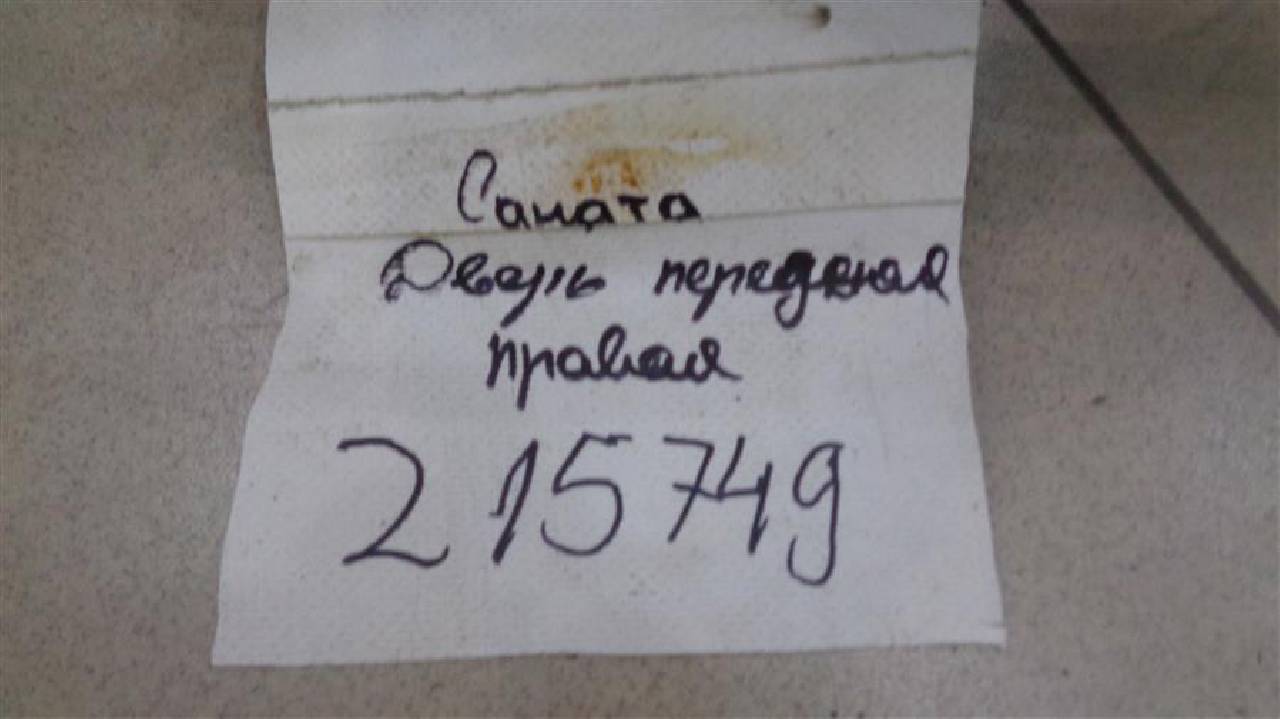 Саната
Дверь передняя
правая
215749